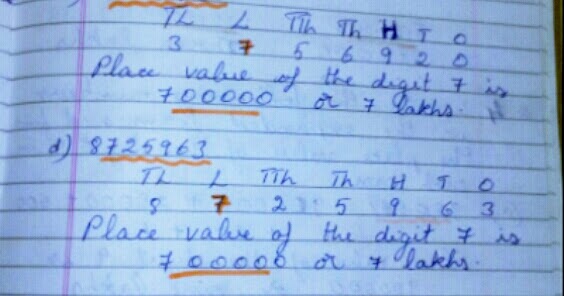 TL L TTh Th H T O
3 7 5 6 9 2 0
Place value of the digit 7 is
700000 or 7 lakhs.
d) 8725963
TL L TTh Th H T O
8 7 2 5 9 6 3
Place value of the digit 7 is
700000 or 7 lakhs.